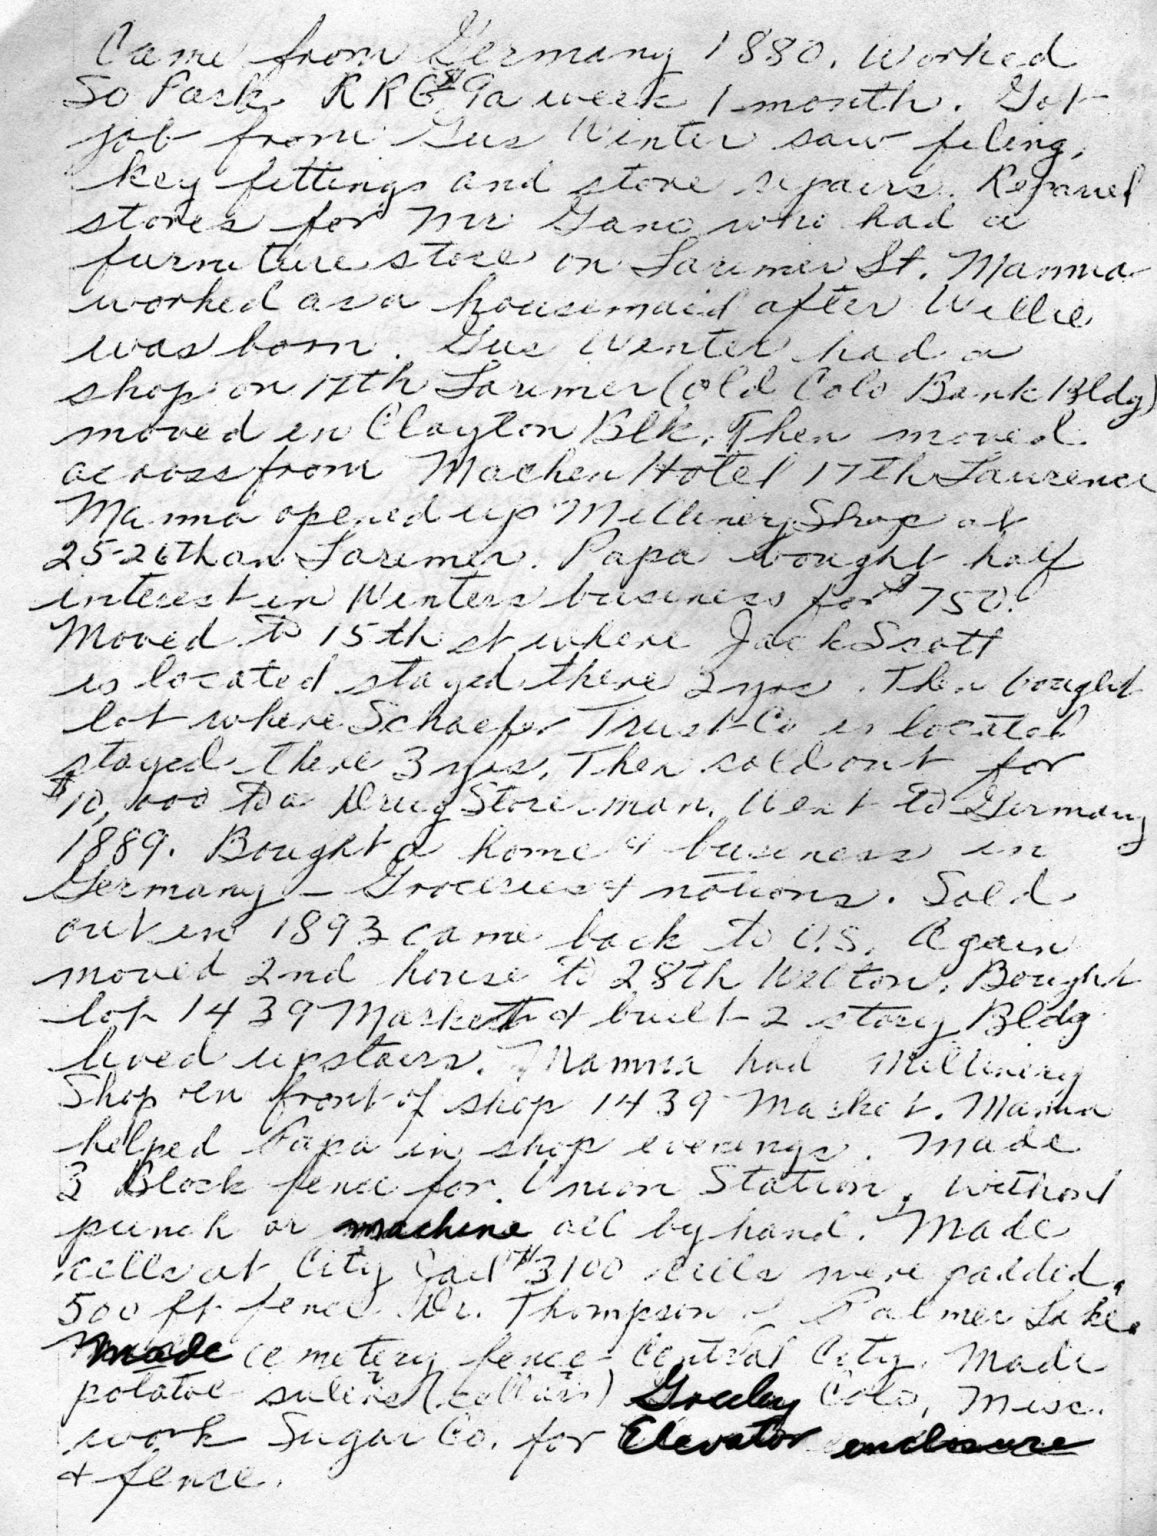 Came from Germany 1880. Worked
So Park RRG $9 a week 1 month. Got
job from Gus Winter saw filing,
key fittings and stove repairs. Repaired
stoves for Mr Gano who had a
furniture store on Larimer St. Mamma
worked as a housemaid after Willie
was born. Gus Winter had a
shop on 17th Larimer (old Colo Bank Bldg)
moved in Clayton Blk. Then moved
across from Machen Hotel 17th Laurence
Mamma opened up Millinery Shop at
25-26th on Larimer. Papa bought half
interest in Winters business for $750.
Moved to 15th st where Jack Scott
is located stayed there 2 yrs. Then bought
lot where Schaefer Trust Co is located
stayed there 3 yrs. Then sold out for
$10,000 to a Drug Store man. Went to Germany
1889. Bought a home & business in
Germany - Groceries & notions. Sold
out in 1893 came back to U.S. Again
moved 2nd house to 28th Welton. Bought
lot 1439 Market & built 2 story Bldg
lived upstairs. Mamma had Millinery
Shop in front of shop 1439 Market. Mama
helped Papa in shop evenings. Made
3 Block fence for Union Station, without
punch or machine all by hand. Made
cells at City Jail $3100 cells were padded.
500 ft fence Dr. Thompson Palmer Lake.
Made cemetery fence - Central City. Made
potatoe (cellars) Greeley Colo, Misc.
work Sugar Co. for Elevator enclosure
& fence.